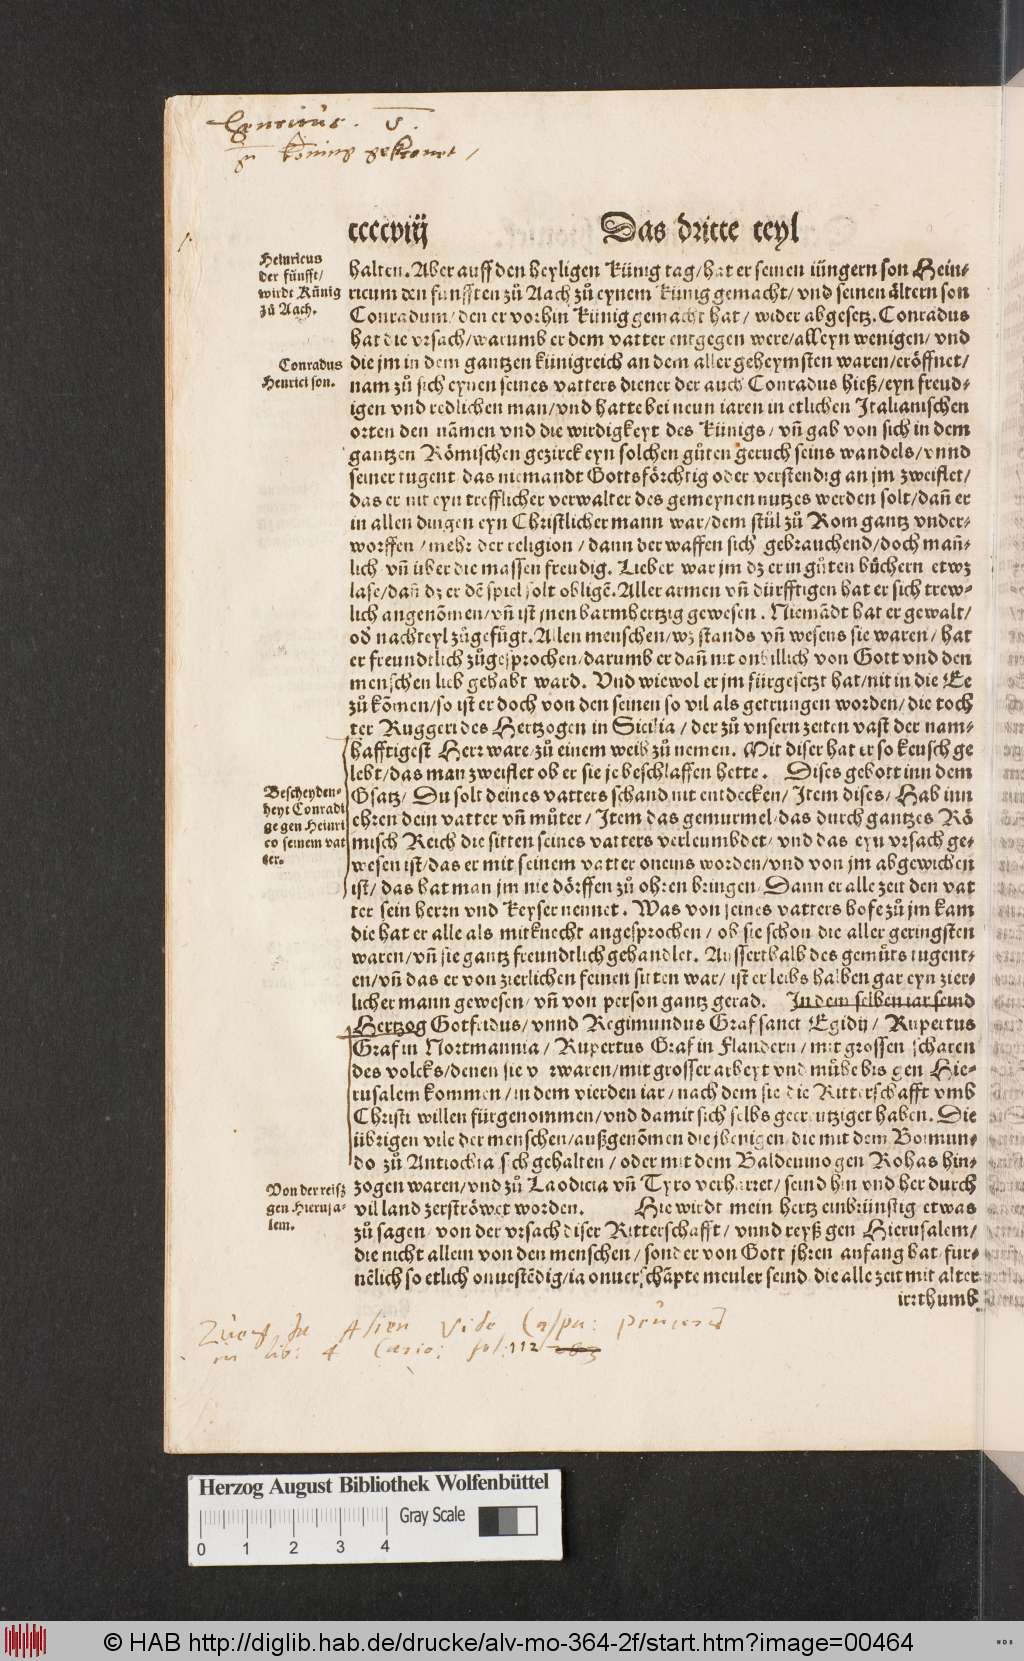 Henricus. V.
zu König gekrönet /
ccccviij Das dritte teyl
Heinricus
der fünfft/
wirdt Künig
zů Aach.
halten. Aber auff den heyligen Künig tag/ hat er seinen iüngern son Hein-
ricum den fünfften zů Aach zů eynem Künig gemacht/ vnd seinen ältern son
Conradum/ den er vorhin Künig gemacht hat/ wider abgesetz. Conradus
hat die vrsach/ warumb er dem vatter entgegen were/ alleyn wenigen/ vnd
Conradus
Henrici son.
die jm in dem gantzen künigreich an dem aller geheymsten waren/ eröffnet/
nam zů sich eynen seines vatters diener der auch Conradus hieß/ eyn freud-
igen vnd redlichen man/ vnd hatte bei neun iaren in etlichen Italianischen
orten den nãmen vnd die wirdigkeyt des Künigs/ vñ gab von sich in dem
gantzen Römischen gezirck eyn solchen gůten geruch seins wandels/ vnnd
seiner tugent das niemandt Gottsförchtig oder verstendig an jm zweiflet/
das er nit eyn trefflicher verwalter des gemeynen nutzes werden solt/ dañ er
in allen dingen eyn Christlicher mann war/ dem stůl zů Rom gantz vnder-
worffen/ mehr der religion/ dann der waffen sich gebrauchend/ doch mañ-
lich vñ über die massen freudig. Lieber war jm dz er in gůten bůchern etwz
lase/ dañ dz er dẽ spiel solt obligẽ. Aller armen vñ dürfftigen hat er sich trew-
lich angenõmen/ vñ ist jnen barmhertzig gewesen. Niemãdt hat er gewalt/
od' nachteyl zůgefůgt. Allen menschen/ wz stands vñ wesens sie waren/ hat
er freundtlich zůgesprochen/ darumb er dañ nit onbillich von Gott vnd den
menschen lieb gehabt ward. Vnd wiewol er jm fürgesetzt hat/ nit in die Ee
zů kõmen/ so ist er doch von den seinen so vil als getrungen worden/ die toch
ter Ruggeri des Hertzogen in Sicilia/ der zů vnsern zeiten vast der nam-
hafftigest Herr ware/ zů einem weib zů nemen. Mit diser hat er so keusch ge
lebt/ das man zweiflet ob er sie je beschlaffen hette. Dises gebott inn dem
Bescheyden-
heyt Conradi
gegen Heinri
co seinem vat
ter.
Gsatz/ Du solt deines vatters schand nit entdecken/ Item dises/ Hab inn
ehren dein vatter vñ můter/ Item das gemurmel/ das durch gantzes Rö
misch Reich die sitten seines vatters verleumbdet/ vnd das eyn vrsach ge-
wesen ist/ das er mit seinem vatter oneins worden/ vnd von jm abgewichen
ist/ das hat man jm nie dörffen zů ohren bringen. Dann er alle zeit den vat
ter sein herrn vnd Keyser nennet. Was von seines vatters hofe zů jm kam
die hat er alle als mitknecht angesprochen/ ob sie schon die aller geringsten
waren/ vñ sie gantz freundtlich gehandlet. Ausserthalb des gemůts tugent-
en/ vñ das er von zierlichen feinen sitten war/ ist er leibs halben gar eyn zier-
licher mann gewesen/ vñ von person gantz gerad. In dem selben iar seind
Hertzog Gotfridus/ vnnd Regimundus Graf sanct Egidij/ Rupertus
Graf in Nortmannia/ Rupertus Graf in Flandern/ mit grossen scharen
des volcks/ denen sie vor waren/ mit grosser arbeyt vnd můhe bis gen Hie-
rusalem kommen/ in dem vierden iar/ nach dem sie die Ritterschafft vmb
Christi willen fürgenommen/ vnd damit sich selbs gecreutziget haben. Die
übrigen vile der menschen/ außgenõmen die jhenigen/ die mit dem Boimun-
do zů Antiochia sich gehalten/ oder mit dem Baldeuino gen Rohas hin-
Von der reisz
gen Hierusa-
lem.
zogen waren/ vnd zů Laodicia vñ Tyro verharret/ seind hin vnd her durch
vil land zerströwet worden. Hie wirdt mein hertz einbrünstig etwas
zů sagen von der vrsach diser Ritterschafft/ vnnd reyß gen Hierusalem/
die nicht allein von den menschen/ sonder von Gott jhren anfang hat/ für-
nẽlich so etlich onuestẽdig/ ia onuerschãpte meuler seind/ die alle zeit mit alter
irrthumb
Vide
in lib: 4 fol: 112
Herzog August Bibliothek Wolfenbüttel
Gray Scale
0 1 2 3 4
© HAB http://diglib.hab.de/drucke/alv-mo-364-2f/start.htm?image=00464